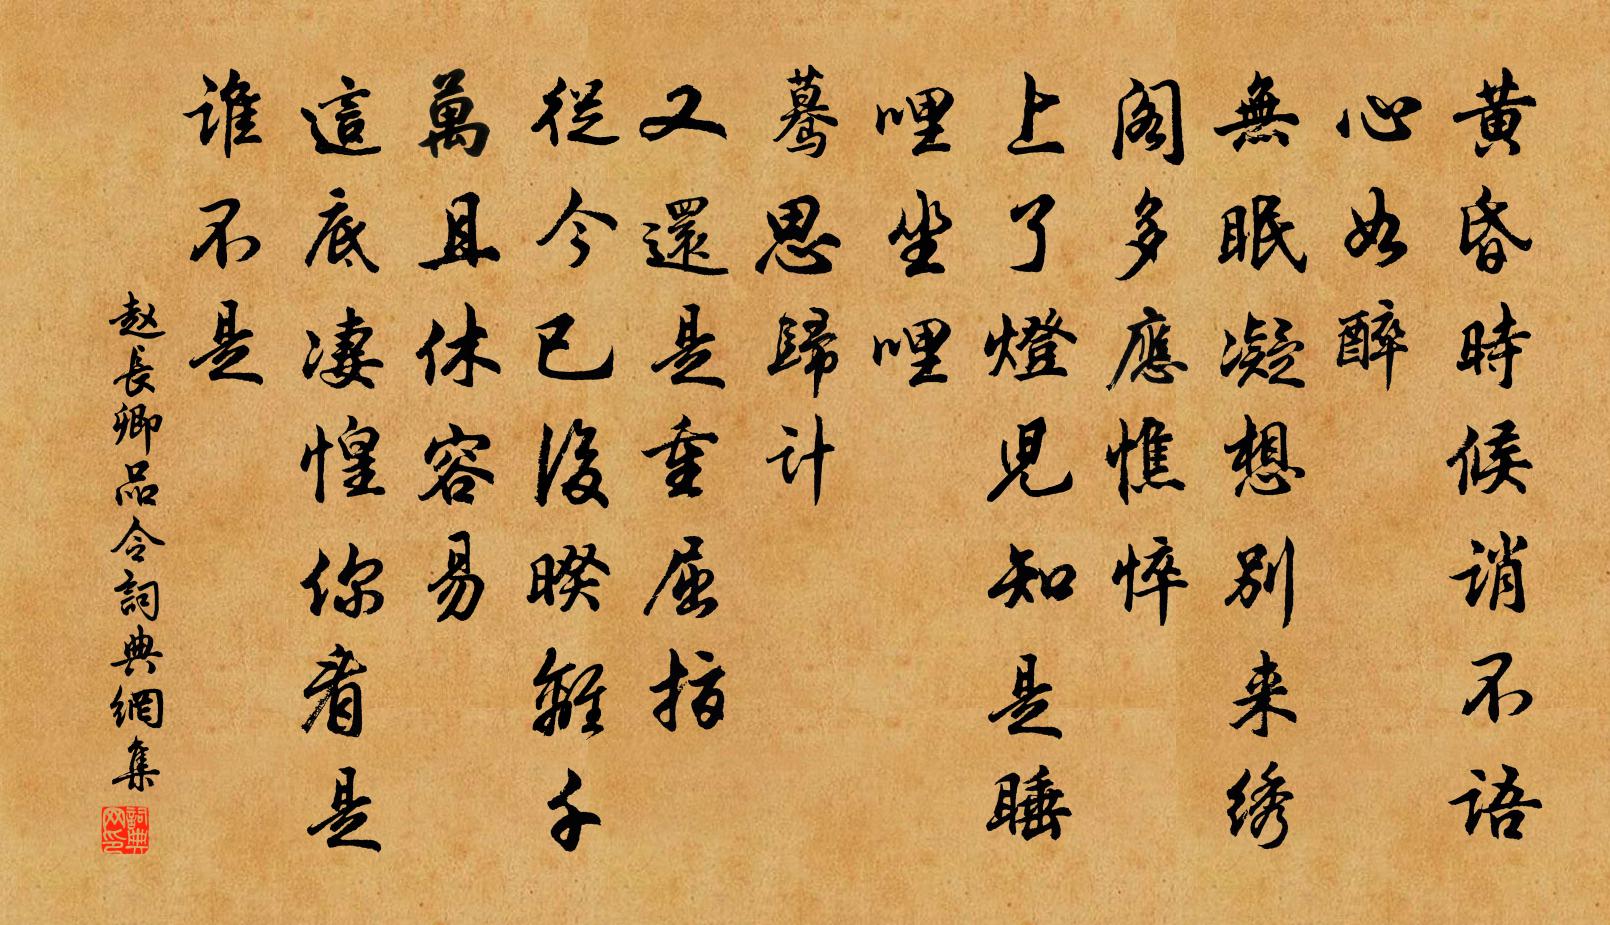 黄昏時候诮不語
心如醉
無眠凝想别来绣
阁多應憔悴
上了燈児知是睡
哩坐哩
驀思歸计
又還是重屈指
從今已後暌離千
萬且休容易
這底凄惶你看是
谁不是
赵長卿品令詞典網集
詞典
网印